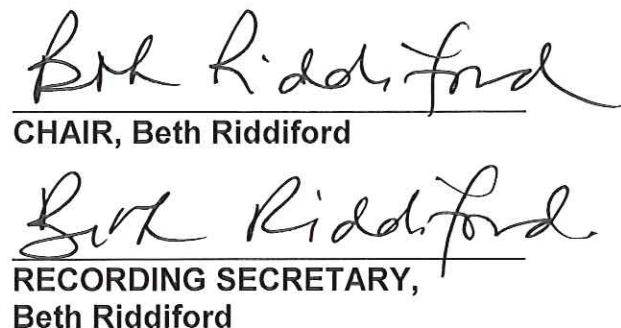 Beth Riddiford
CHAIR, Beth Riddiford
Beth Riddiford
RECORDING SECRETARY,
Beth Riddiford